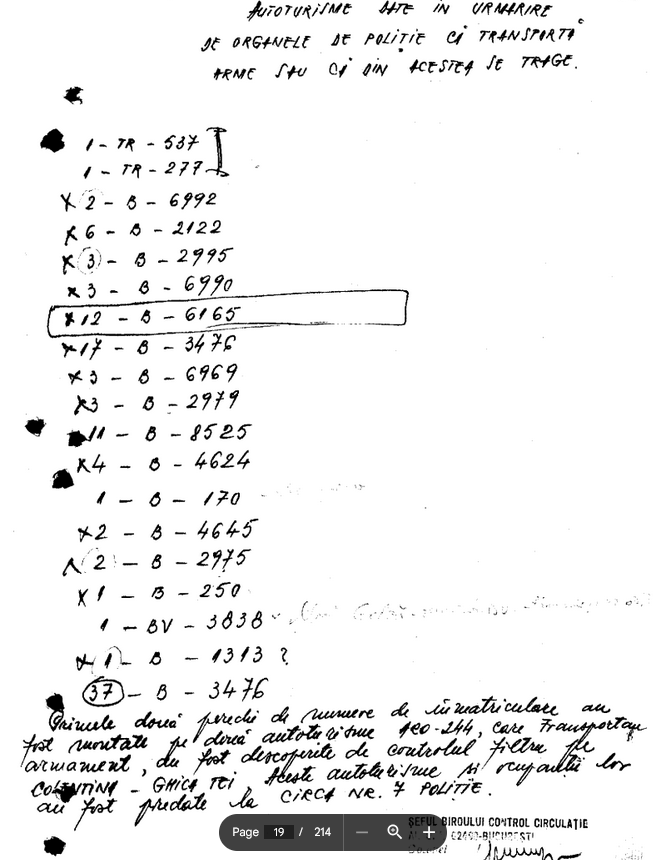 AUTOTURISME DATE IN URMARIRE
DE ORGANELE DE POLIȚIE CĂ TRANSPORTĂ
ARME SAU CĂ DIN ACESTEA SE TRAGE.
1 - TR - 537
1 - TR - 277
x 2 - B - 6992
x 6 - B - 2122
x 3 - B - 2995
x 3 - B - 6990
x 12 - B - 6165
x 17 - B - 3476
x 3 - B - 6969
x 3 - B - 2979
11 - B - 8525
x 4 - B - 4624
1 - B - 170
x 2 - B - 4645
2 - B - 2975
x 1 - B - 250
1 - BV - 3838
x 1 - B - 1313 ?
37 - B - 3476
Primele două perechi de numere de înmatriculare au
fost montate pe două autoturisme ARO-244, care transportau
armament, au fost descoperite de controlul filtru pe
COLENTINA - GHICA TEI Aceste autoturisme și ocupanții lor
au fost predate la CIRCA NR. 7 POLIȚIE.
ȘEFUL BIROULUI CONTROL CIRCULAȚIE
U.M. 02400-BUCUREȘTI
Page 19 / 214